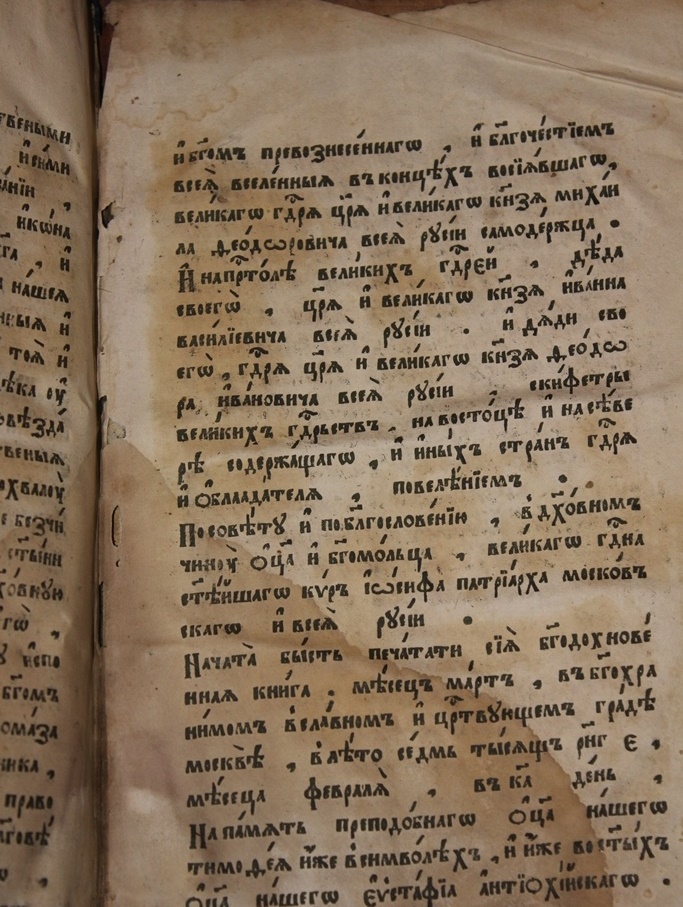 твеными
и҆ бг҃омъ превознесе́ннагѡ , и҆ бл҃гоче́стїемъ
всеѧ̀ вселе́нныѧ въ конце́хъ восїѧ́вшагѡ ,
вели́кагѡ гдⷭ҇рѧ цр҃ѧ̀ и҆ вели́кагѡ кн҃зѧ михаи
ла ѳео́дѡровича всеѧ̀ рꙋсі́и самоде́ржца .
И҆ на прⷭ҇то́лѣ вели́кихъ гдⷭ҇ре́й . дѣ́да
своегѡ̀ , цр҃ѧ̀ и҆ вели́кагѡ кн҃зѧ и҆ва́нна
васи́лїевича всеѧ̀ рꙋсі́и . и҆ дѧ́ди сво
егѡ̀ , гдⷭ҇рѧ цр҃ѧ̀ и҆ вели́кагѡ кн҃зѧ ѳео́дѡ
ра и҆ва́новича всеѧ̀ рꙋсі́и , ски́фетры
вели́кихъ гдⷭ҇рьствъ . на восто́цѣ и҆ на сѣ́ве
рѣ содержа́щагѡ , и҆ и҆ны́хъ стра́нъ гдⷭ҇рѧ
и҆ ѻ҆блада́телѧ , повелѣ́нїемъ .
По совѣ́тꙋ и҆ по бл҃гослове́нїю , в̾ дх҃о́вномъ
чинꙋ̀ ѻ҆ц҃а̀ и҆ бг҃омо́льца , вели́кагѡ гдⷭ҇на
ст҃ѣ́йшагѡ кѵ́ръ і҆ѡ́сифа патрїа́рха моско́в
скагѡ и҆ всеѧ̀ рꙋсі́и .
Нача́та бы́сть печа́тати сїѧ̀ бг҃одохнове́
ннаѧ кни́га . мѣ́сецъ ма́ртъ , въ бг҃охра
ни́момъ в̾ сла́вномъ и҆ црⷭ҇твꙋющемъ гра́дѣ
москвѣ̀ , в̾ лѣ́то се́дмь ты́сѧщъ рн҃г є҃ ,
мѣ́сеца февра́лѧ , въ ка҃ де́нь ,
На па́мѧть преподо́бнагѡ ѻ҆ц҃а̀ на́шегѡ
тимоѳе́ѧ и҆́же в̾ сѵмво́лѣхъ , и҆ и҆́же во ст҃ы́хъ
ѻ҆ц҃а̀ на́шегѡ є҆ѵста́фїа а҆нтїѻхі́йскагѡ .